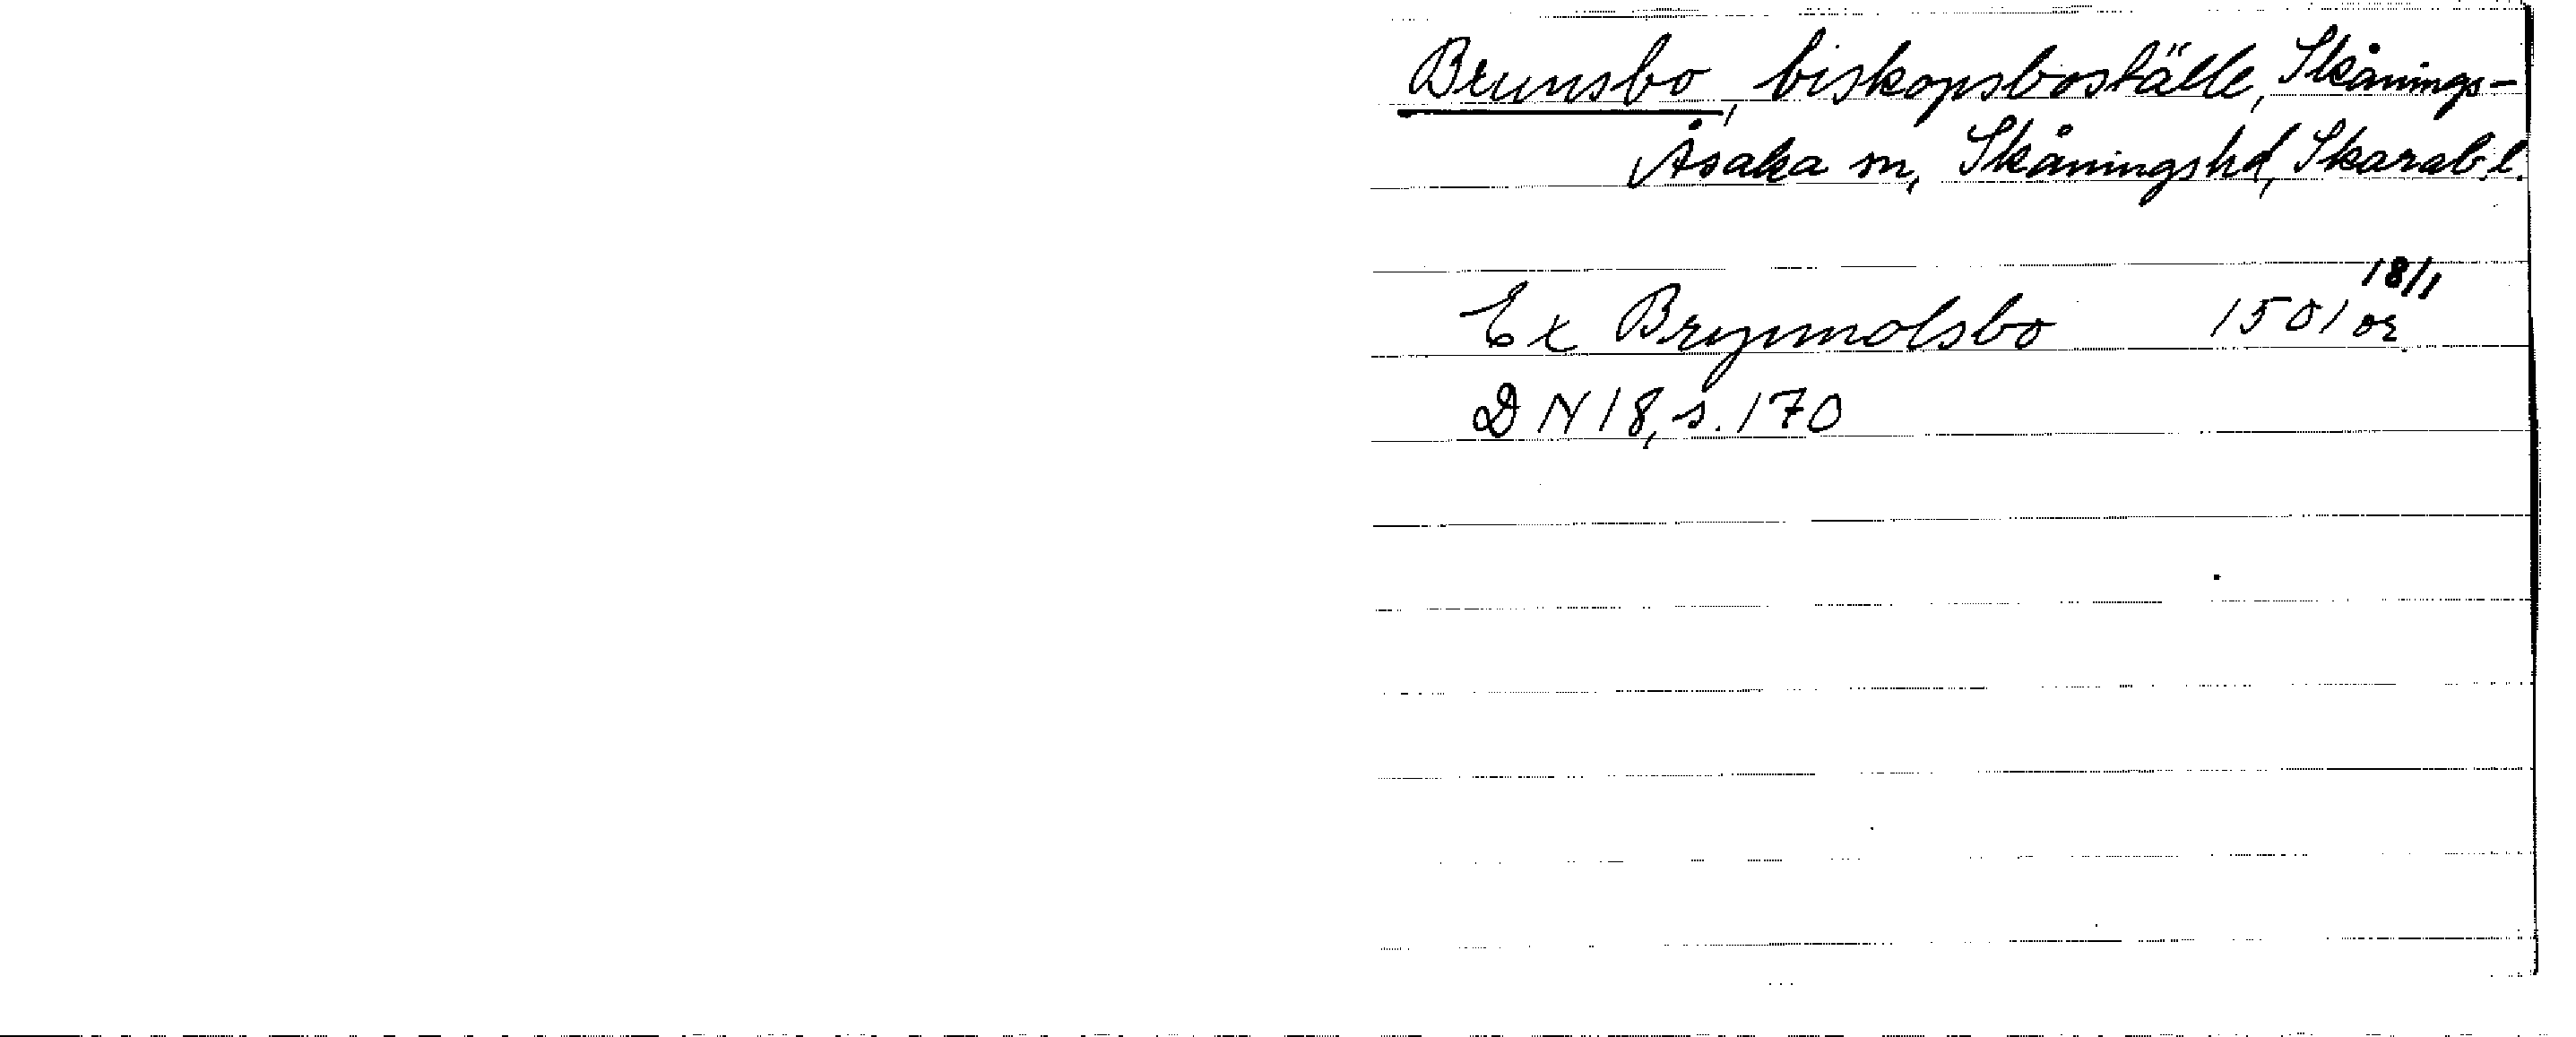 Brunsbo, biskopsboställe, Skånings-
Åsaka sn, Skånings hd, Skarab.l.
Ex Brynnolsbo 1501 18/1 or.
DN 18, s. 170